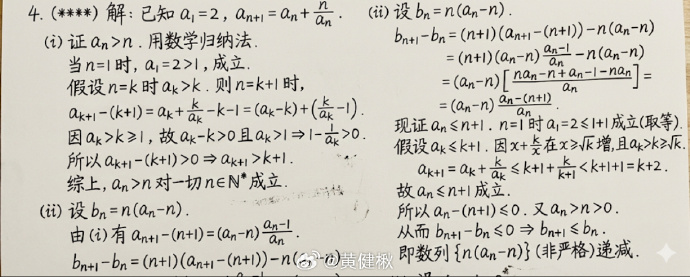 4. (****) 解: 已知 a₁=2, aₙ₊₁=aₙ+n/aₙ.
(i) 证 aₙ>n. 用数学归纳法.
当 n=1 时, a₁=2>1, 成立.
假设 n=k 时 aₖ>k. 则 n=k+1 时,
aₖ₊₁-(k+1)=aₖ+k/aₖ-k-1=(aₖ-k)+(k/aₖ-1).
因 aₖ>k≥1, 故 aₖ-k>0 且 aₖ>1⇒1-1/aₖ>0.
所以 aₖ₊₁-(k+1)>0⇒aₖ₊₁>k+1.
综上, aₙ>n 对一切 n∈ℕ* 成立.
(ii) 设 bₙ=n(aₙ-n).
由(i)有 aₙ₊₁-(n+1)=(aₙ-n)(aₙ-1)/aₙ.
bₙ₊₁-bₙ=(n+1)(aₙ₊₁-(n+1))-n(aₙ-n)
(ii) 设 bₙ=n(aₙ-n).
bₙ₊₁-bₙ=(n+1)(aₙ₊₁-(n+1))-n(aₙ-n)
=(n+1)(aₙ-n)(aₙ-1)/aₙ-n(aₙ-n)
=(aₙ-n)[(naₙ-n+aₙ-1-naₙ)/aₙ]=
=(aₙ-n)(aₙ-(n+1))/aₙ.
现证 aₙ≤n+1. n=1 时 a₁=2≤1+1 成立(取等).
假设 aₖ≤k+1. 因 x+k/x 在 x≥√k 增, 且 aₖ>k≥√k.
aₖ₊₁=aₖ+k/aₖ≤k+1+k/(k+1)<k+1+1=k+2.
故 aₙ≤n+1 成立.
所以 aₙ-(n+1)≤0. 又 aₙ>n>0.
从而 bₙ₊₁-bₙ≤0⇒bₙ₊₁≤bₙ.
即数列{n(aₙ-n)}(非严格)递减.
@黄健楸